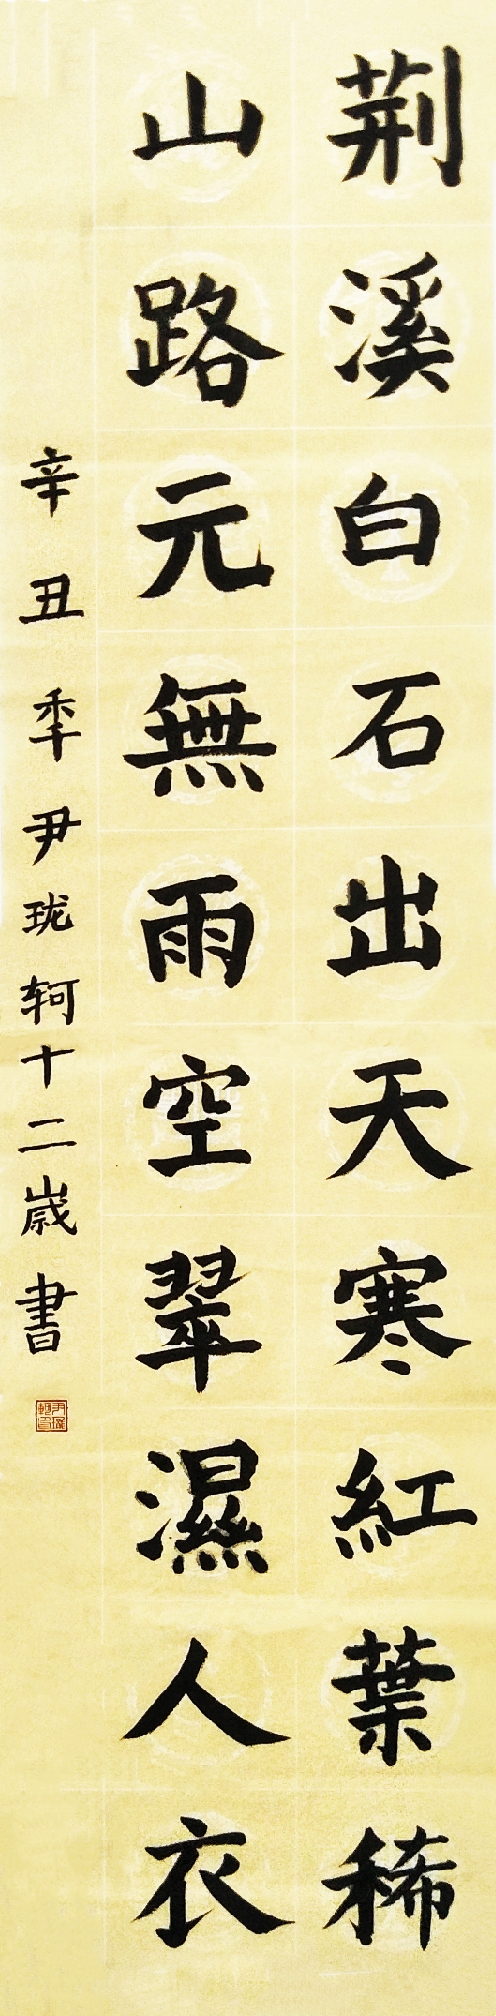 荆溪白石出天寒紅葉稀
山路元無雨空翠濕人衣
辛丑季尹珑轲十二歲書